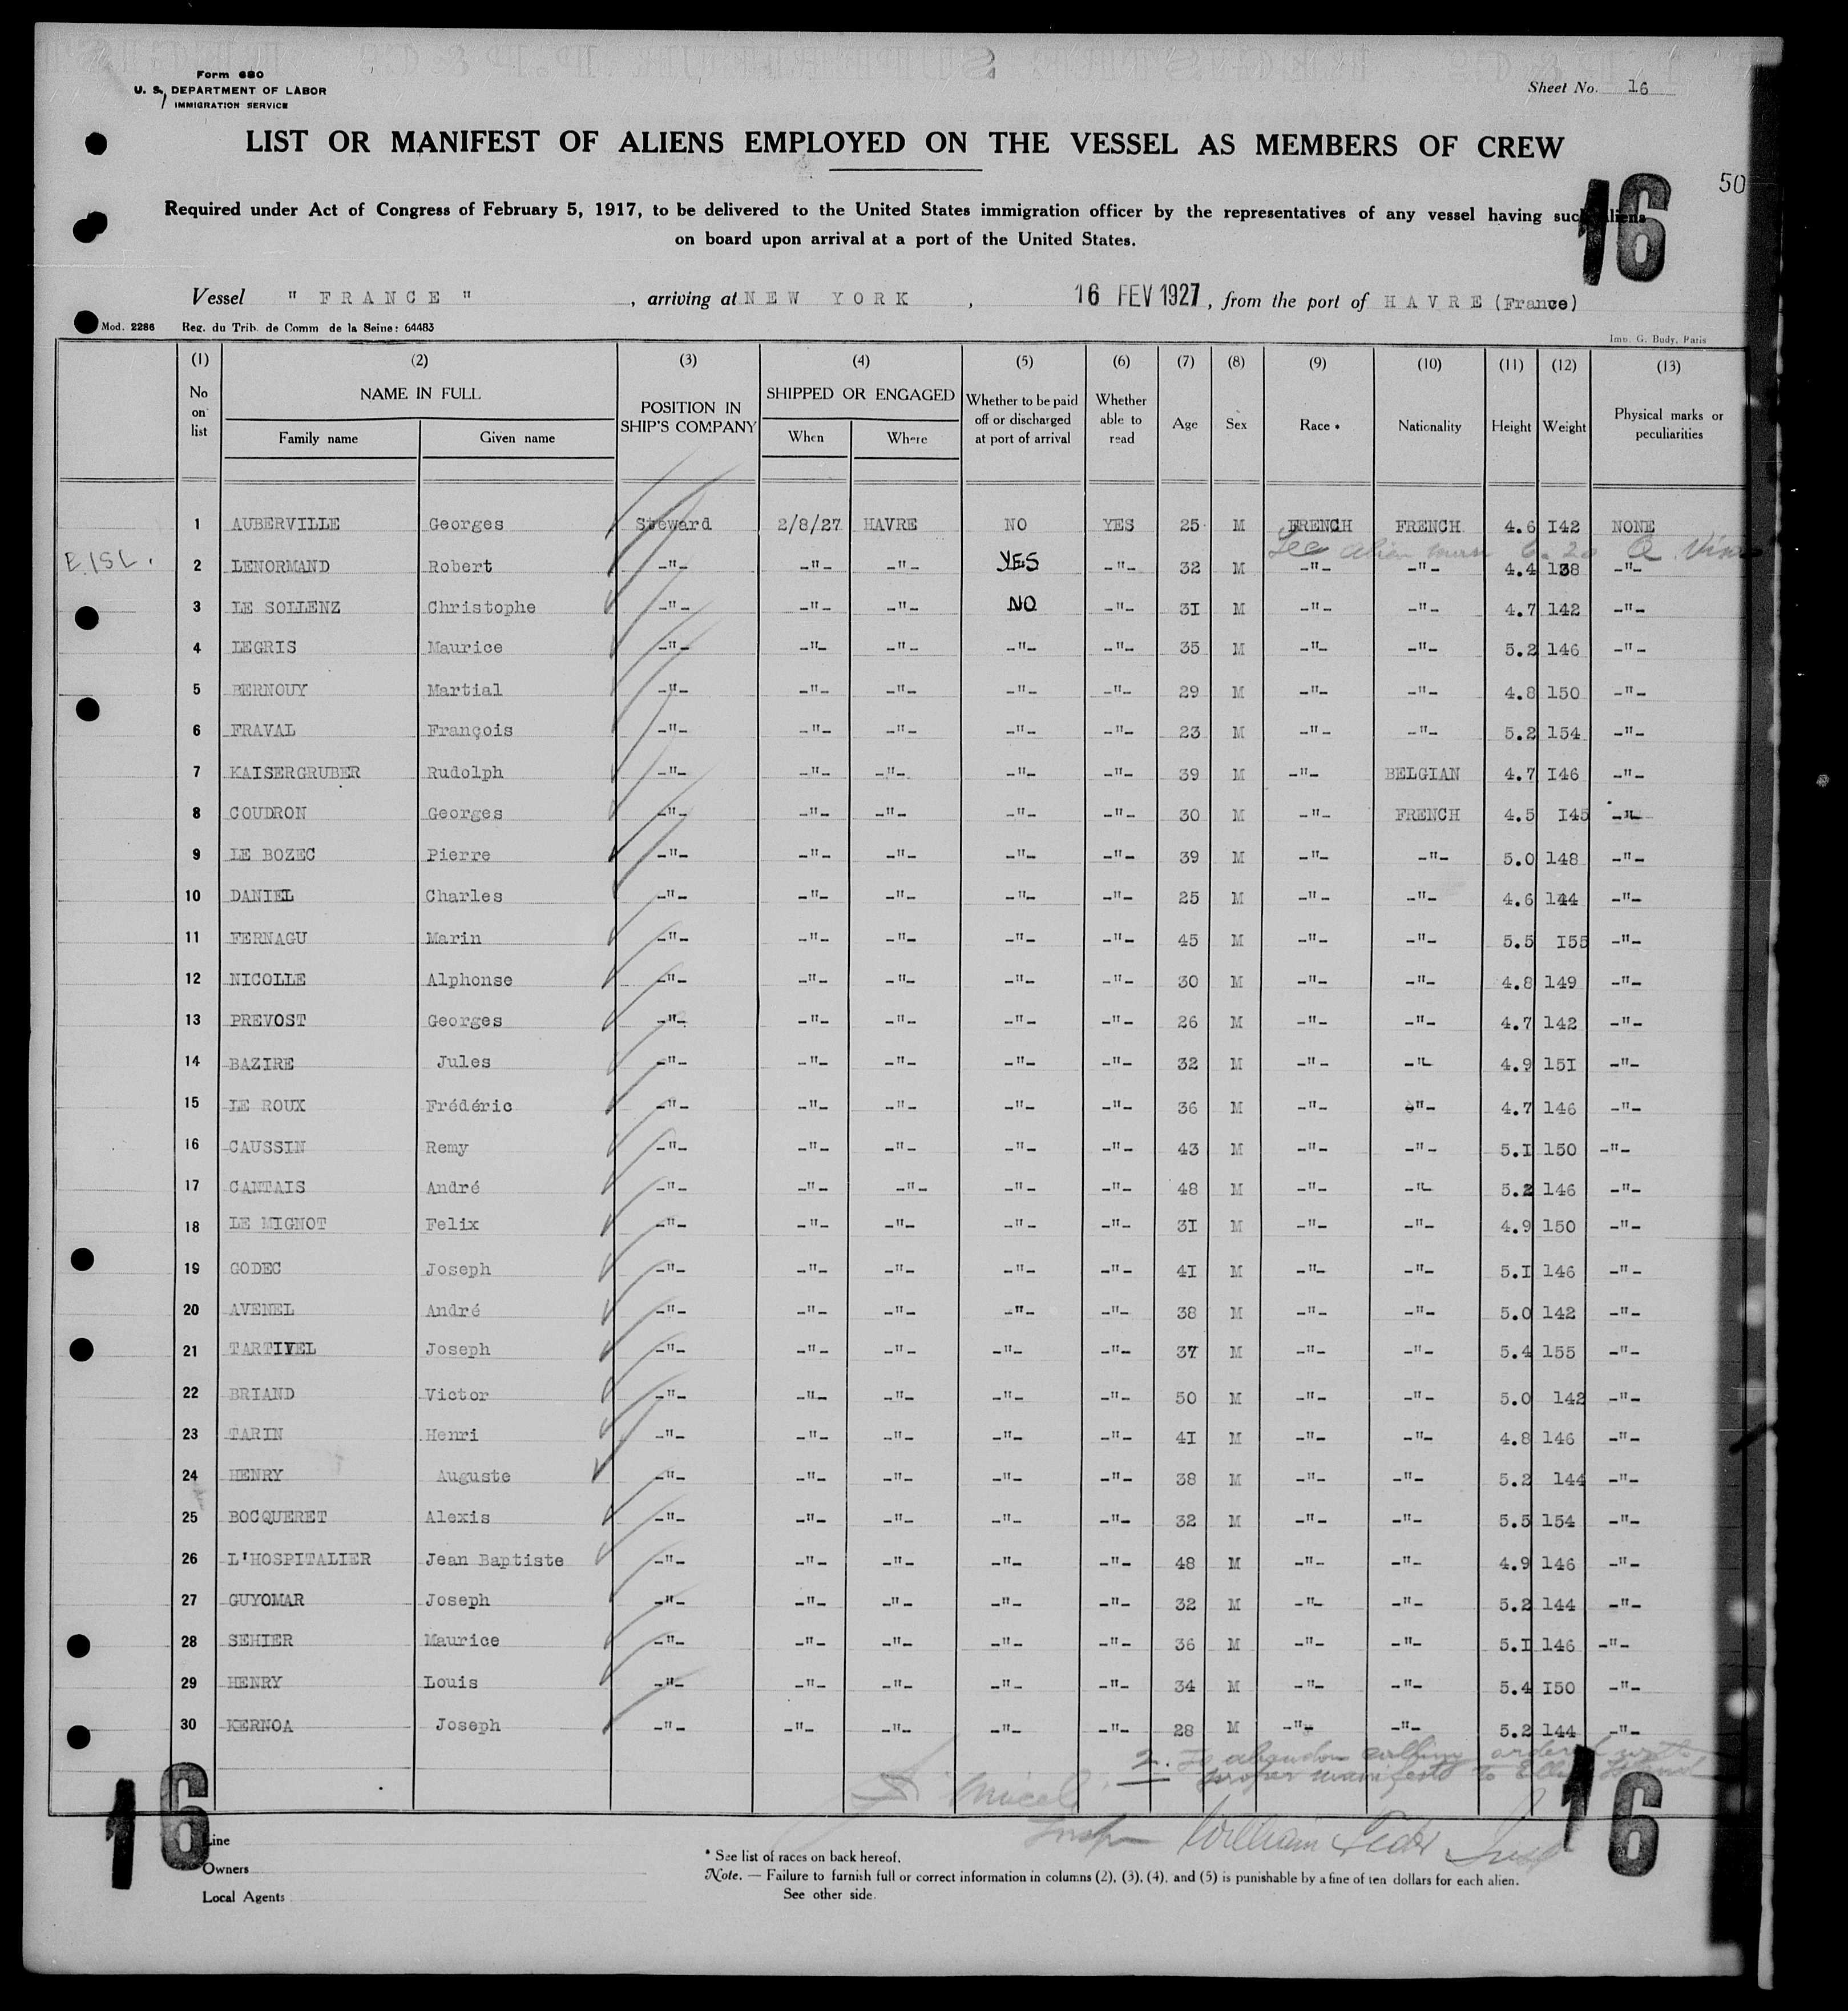 Form 680
U. S. DEPARTMENT OF LABOR
IMMIGRATION SERVICE
Sheet No. 16
LIST OR MANIFEST OF ALIENS EMPLOYED ON THE VESSEL AS MEMBERS OF CREW
16
50
Required under Act of Congress of February 5, 1917, to be delivered to the United States immigration officer by the representatives of any vessel having such aliens
on board upon arrival at a port of the United States.
Vessel " FRANCE " , arriving at NEW YORK , 16 FEV 1927 , from the port of HAVRE (France)
Mod. 2286 Reg. du Trib. de Comm de la Seine: 64483
Imp. G. Body, Paris
(1) (2) (3) (4) (5) (6) (7) (8) (9) (10) (11) (12) (13)
No on list NAME IN FULL Family name Given name POSITION IN SHIP'S COMPANY SHIPPED OR ENGAGED When Where Whether to be paid off or discharged at port of arrival Whether able to read Age Sex Race * Nationality Height Weight Physical marks or peculiarities
1 AUBERVILLE Georges Steward 2/8/27 HAVRE NO YES 25 M FRENCH FRENCH 4.6 142 NONE
See alien
E.ISL. 2 LENORMAND Robert -"- -"- -"- YES -"- 32 M -"- -"- 4.4 138 -"-
3 LE SOLLENZ Christophe -"- -"- -"- NO -"- 31 M -"- -"- 4.7 142 -"-
4 LEGRIS Maurice -"- -"- -"- -"- -"- 35 M -"- -"- 5.2 146 -"-
5 BERNOUY Martial -"- -"- -"- -"- -"- 29 M -"- -"- 4.8 150 -"-
6 FRAVAL François -"- -"- -"- -"- -"- 23 M -"- -"- 5.2 154 -"-
7 KAISERGRUBER Rudolph -"- -"- -"- -"- -"- 39 M -"- BELGIAN 4.7 146 -"-
8 COUDRON Georges -"- -"- -"- -"- -"- 30 M -"- FRENCH 4.5 145 -"-
9 LE BOZEC Pierre -"- -"- -"- -"- -"- 39 M -"- -"- 5.0 148 -"-
10 DANIEL Charles -"- -"- -"- -"- -"- 25 M -"- -"- 4.6 144 -"-
11 FERNAGU Marin -"- -"- -"- -"- -"- 45 M -"- -"- 5.5 155 -"-
12 NICOLLE Alphonse -"- -"- -"- -"- -"- 30 M -"- -"- 4.8 149 -"-
13 PREVOST Georges -"- -"- -"- -"- -"- 26 M -"- -"- 4.7 142 -"-
14 BAZIRE Jules -"- -"- -"- -"- -"- 32 M -"- -"- 4.9 151 -"-
15 LE ROUX Frédéric -"- -"- -"- -"- -"- 36 M -"- -"- 4.7 146 -"-
16 CAUSSIN Remy -"- -"- -"- -"- -"- 43 M -"- -"- 5.1 150 -"-
17 CANTAIS André -"- -"- -"- -"- -"- 48 M -"- -"- 5.2 146 -"-
18 LE MIGNOT Felix -"- -"- -"- -"- -"- 31 M -"- -"- 4.9 150 -"-
19 GODEC Joseph -"- -"- -"- -"- -"- 41 M -"- -"- 5.1 146 -"-
20 AVENEL André -"- -"- -"- -"- -"- 38 M -"- -"- 5.0 142 -"-
21 TARTIVEL Joseph -"- -"- -"- -"- -"- 37 M -"- -"- 5.4 155 -"-
22 BRIAND Victor -"- -"- -"- -"- -"- 50 M -"- -"- 5.0 142 -"-
23 TARIN Henri -"- -"- -"- -"- -"- 41 M -"- -"- 4.8 146 -"-
24 HENRY Auguste -"- -"- -"- -"- -"- 38 M -"- -"- 5.2 144 -"-
25 BOCQUERET Alexis -"- -"- -"- -"- -"- 32 M -"- -"- 5.5 154 -"-
26 L'HOSPITALIER Jean Baptiste -"- -"- -"- -"- -"- 48 M -"- -"- 4.9 146 -"-
27 GUYOMAR Joseph -"- -"- -"- -"- -"- 32 M -"- -"- 5.2 144 -"-
28 SEHIER Maurice -"- -"- -"- -"- -"- 36 M -"- -"- 5.1 146 -"-
29 HENRY Louis -"- -"- -"- -"- -"- 34 M -"- -"- 5.4 150 -"-
30 KERNOA Joseph -"- -"- -"- -"- -"- 28 M -"- -"- 5.2 144 -"-
2. To abandon calling ordered with
proper manifests to Ellis Island
Insp William Insp
16
16
Line
Owners
Local Agents
* See list of races on back hereof.
Note. — Failure to furnish full or correct information in columns (2), (3), (4), and (5) is punishable by a fine of ten dollars for each alien.
See other side.